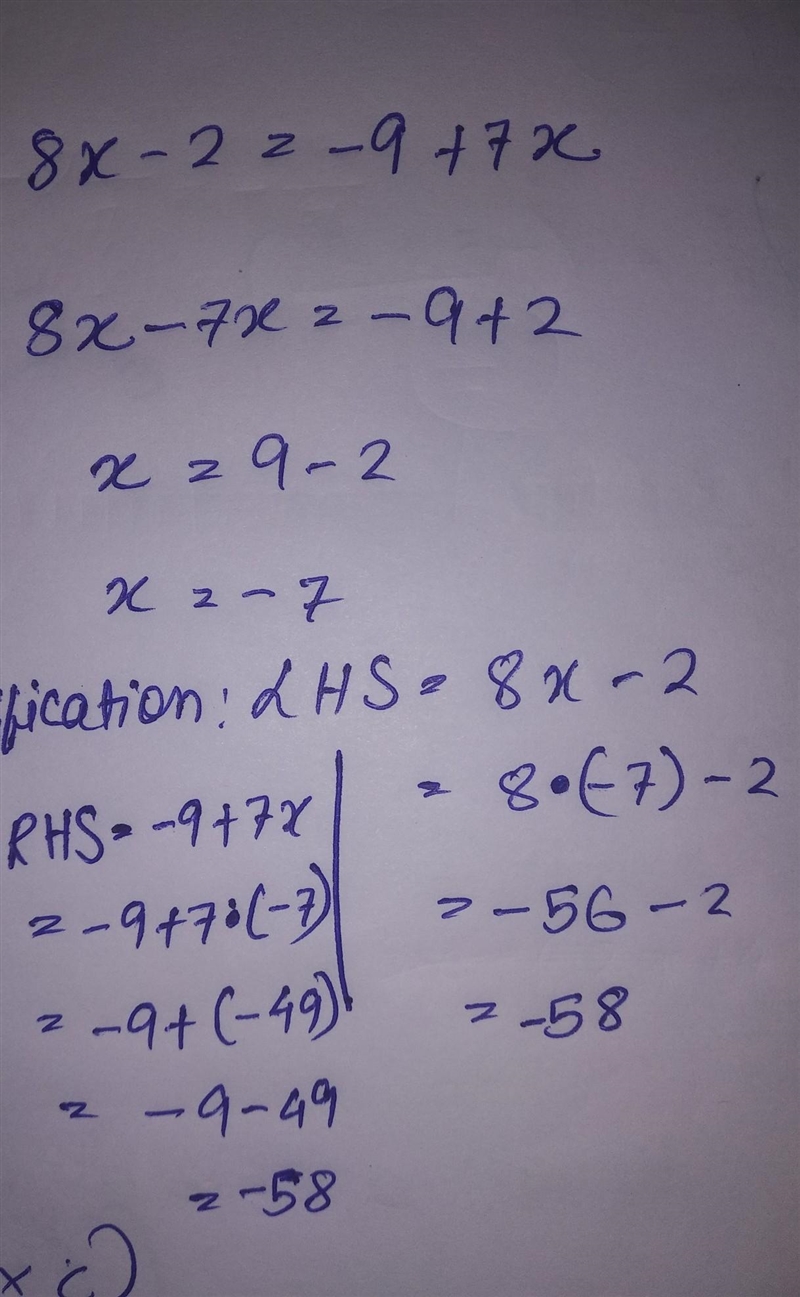 8x - 2 = -9 + 7x
8x - 7x = -9 + 2
x = 9 - 2
x = -7
fication: LHS = 8x - 2
= 8•(-7) - 2
= -56 - 2
= -58
RHS = -9 + 7x
= -9 + 7•(-7)
= -9 + (-49)
= -9 - 49
= -58